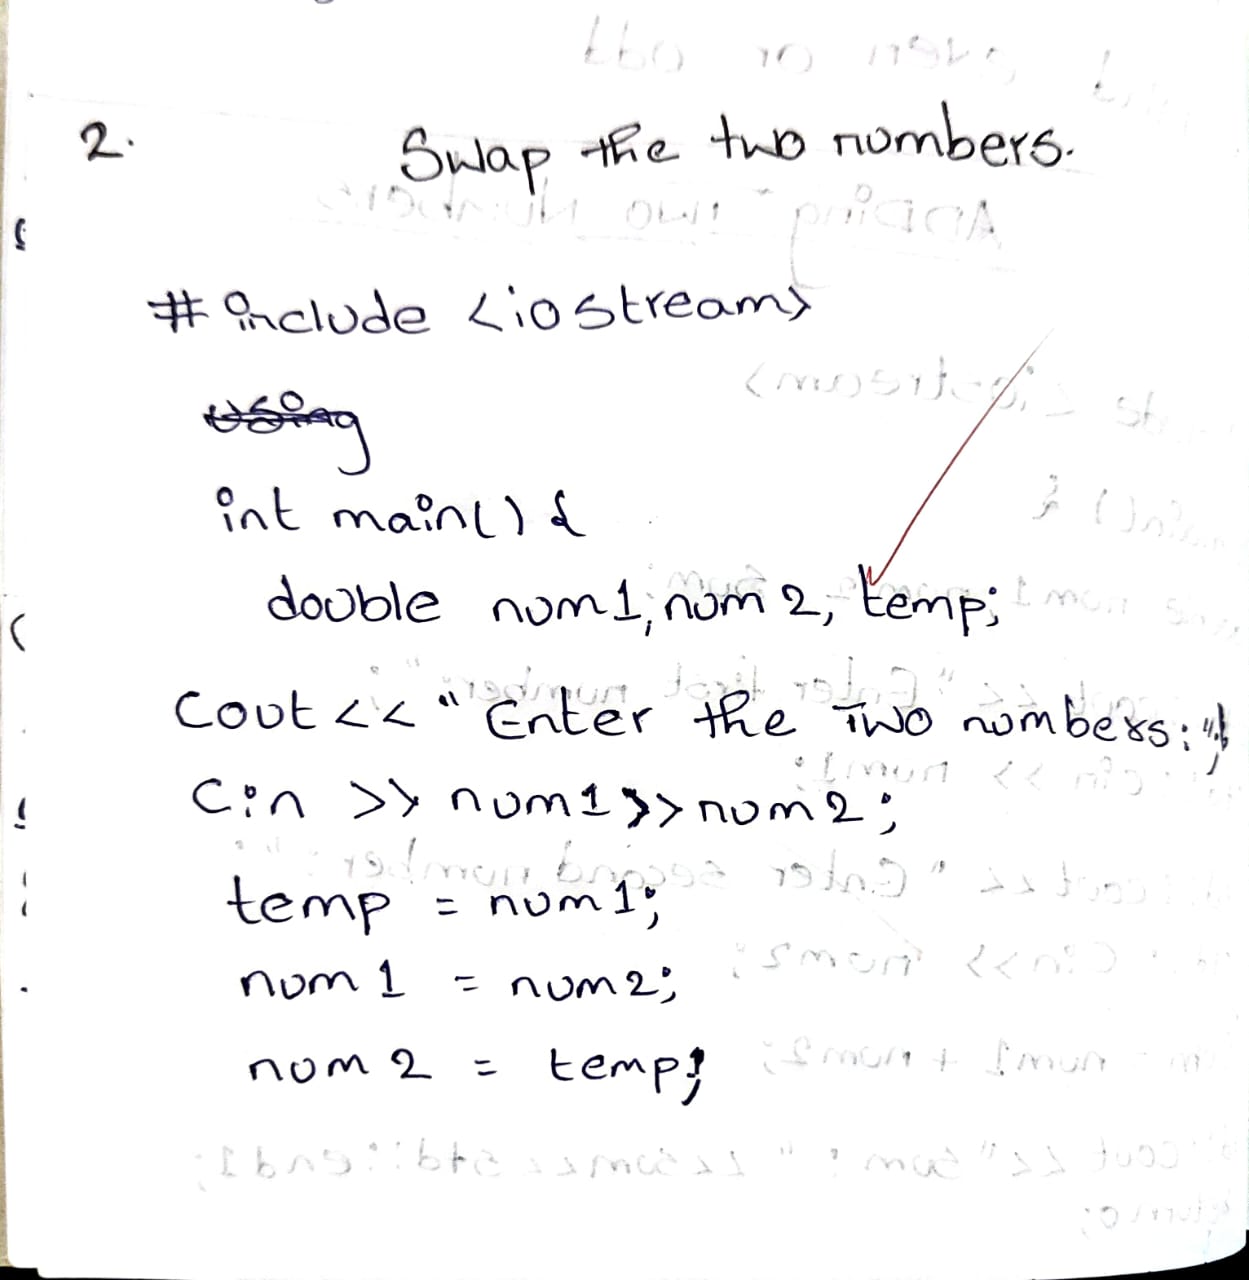 2.
Swap the two numbers.
#include <iostream>
int main() {
double num1, num2, temp;
Cout << "Enter the Two numbers:";
Cin >> num1 >> num2;
temp = num1;
num1 = num2;
num2 = temp;